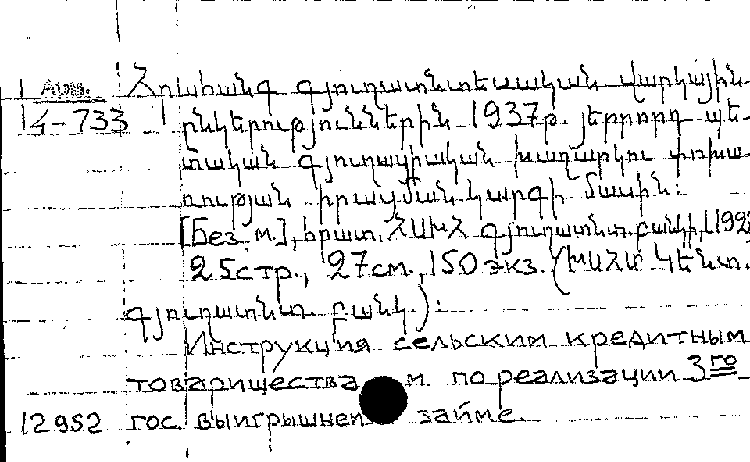 Арм. Հուսհանգ գյուղատնտեսական վարկային
14-733 ընկերություններին 1937թ. յերրորդ պե-
տական գյուղացիական խաղարկու փոխա-
ռության իրացման կարգի մասին:
[Без м.], հրատ. ՀՍԽՀ գյուղատնտ. բանկի, 192
25 стр., 27 см., 150 экз. (ԽՍՀՄ Կենտ.
գյուղատնտ. բանկ.):
Инструкция сельским кредитным
товарищества м. по реализации 3го
12952 гос. выигрышней займе.